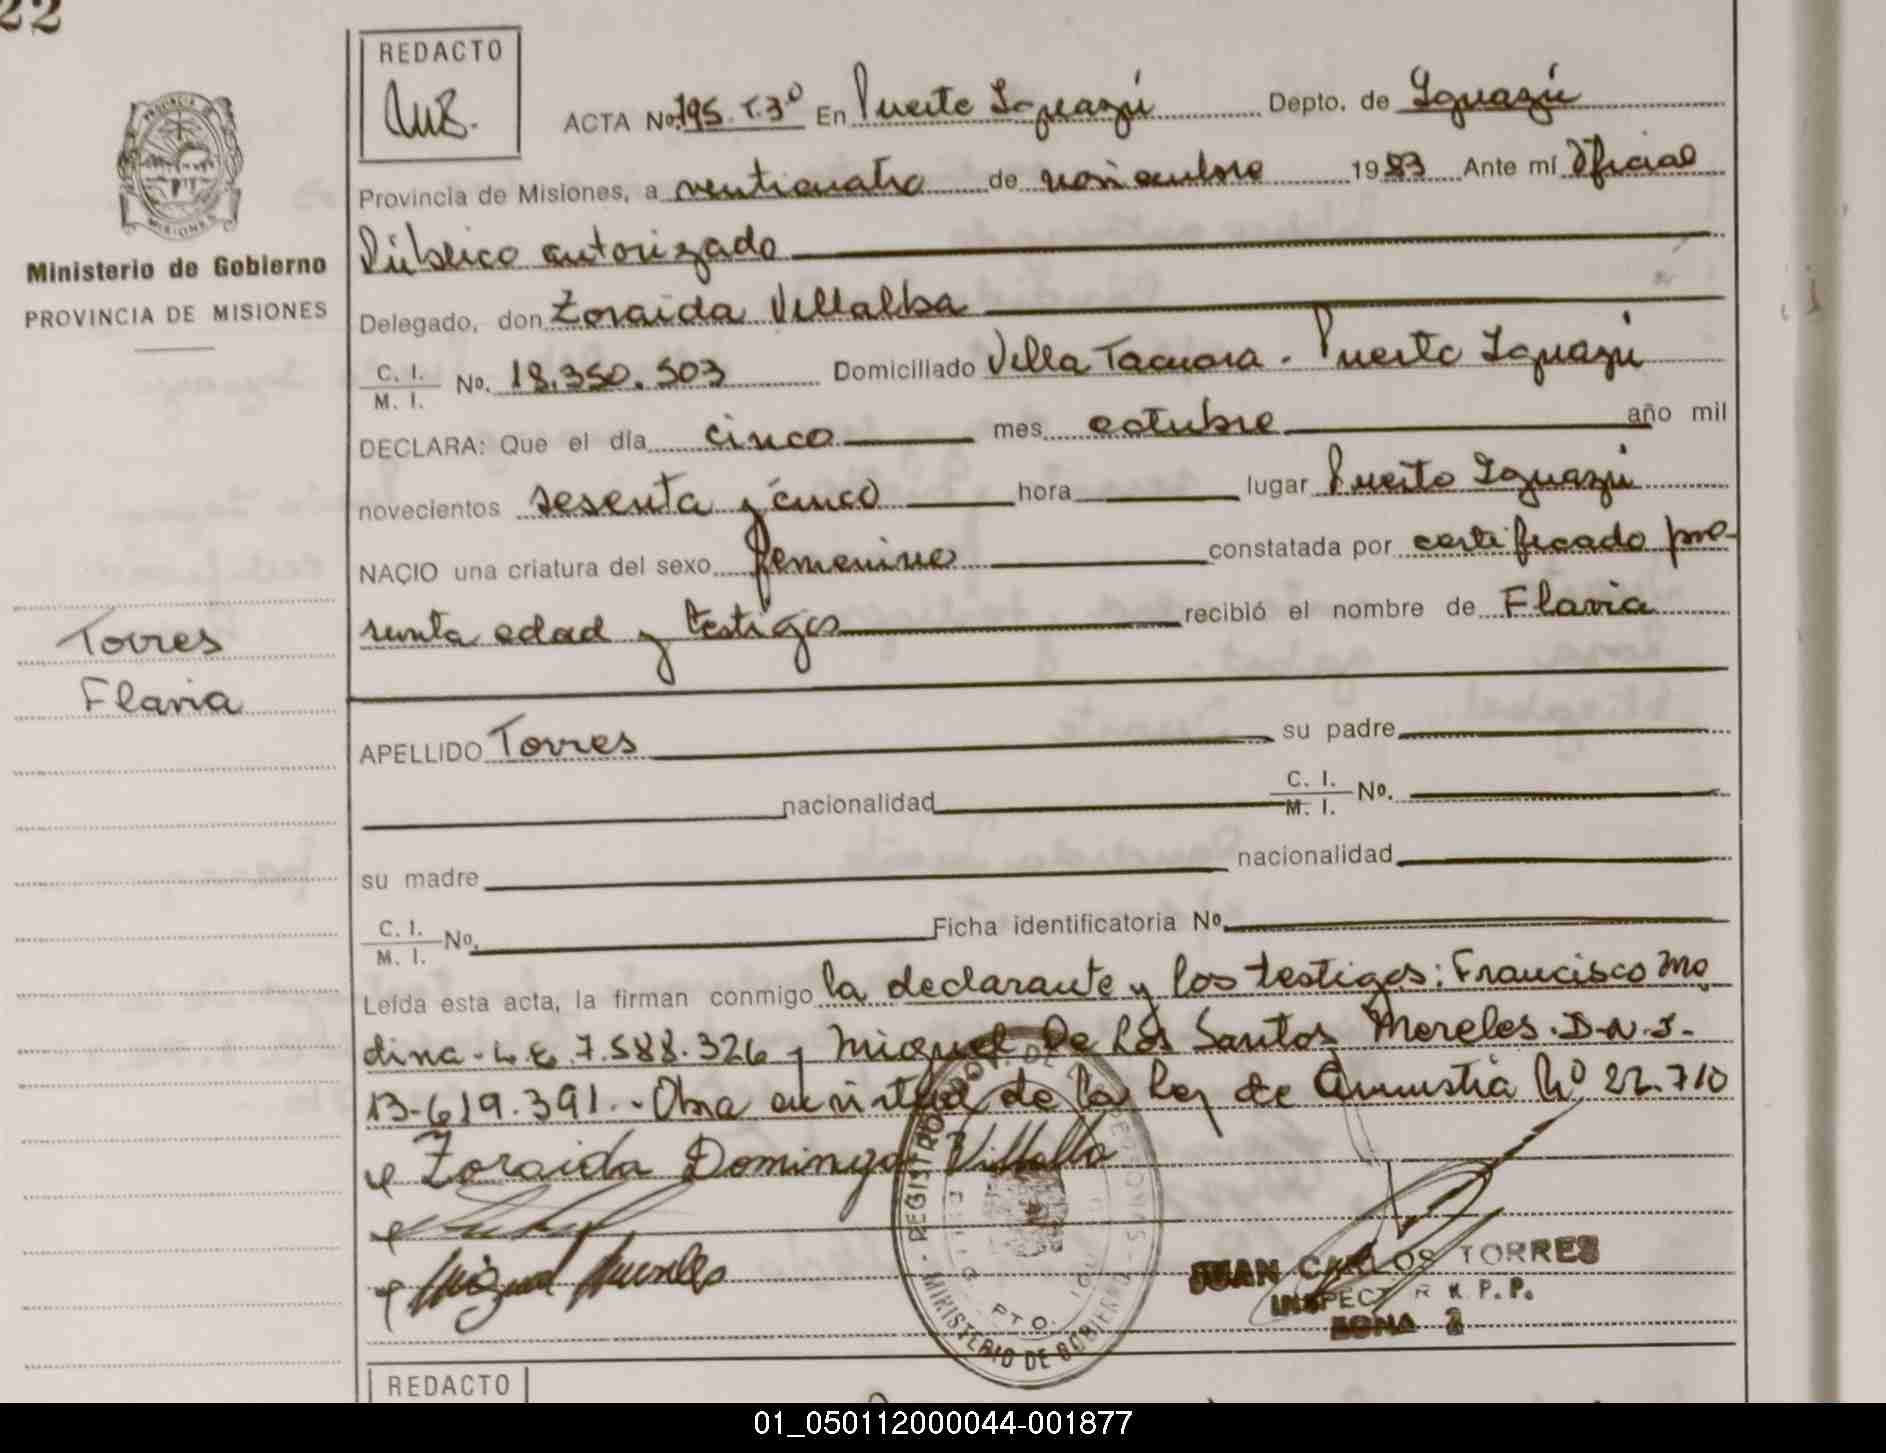 22
REDACTO
ACTA No. 195. T.3º En Puerto Iguazú Depto. de Iguazú
Provincia de Misiones, a venticuatro de noviembre 1983 Ante mí Oficial
Público autorizado
Ministerio de Gobierno
PROVINCIA DE MISIONES
Delegado, don Zoraida Villalba
C. I. / M. I. No. 18.350.503 Domiciliado Villa Tacuara - Puerto Iguazú
DECLARA: Que el día cinco mes octubre año mil
novecientos sesenta y cinco hora lugar Puerto Iguazú
NACIO una criatura del sexo femenino constatada por certificado pre-
sunta edad y testigos recibió el nombre de Flavia
Torres
Flavia
APELLIDO Torres su padre
nacionalidad C. I. / M. I. No.
su madre nacionalidad
C. I. / M. I. No. Ficha identificatoria No.
Leída esta acta, la firman conmigo la declarante y los testigos: Francisco Me
dina - L.E. 7.588.326 y Miguel De Los Santos Mereles. D.N.I.
13.619.391.- Obra en virtud de la ley de Amnistía Nº 22.710
Zoraida Dominga Villalba
Miguel Mereles
REGISTRO PROV. DE LAS PERSONAS - MINISTERIO DE GOBIERNO
PTO. IGU
JUAN CARLOS TORRES
INSPECTOR R. P. P.
ZONA 2
REDACTO
01_050112000044-001877